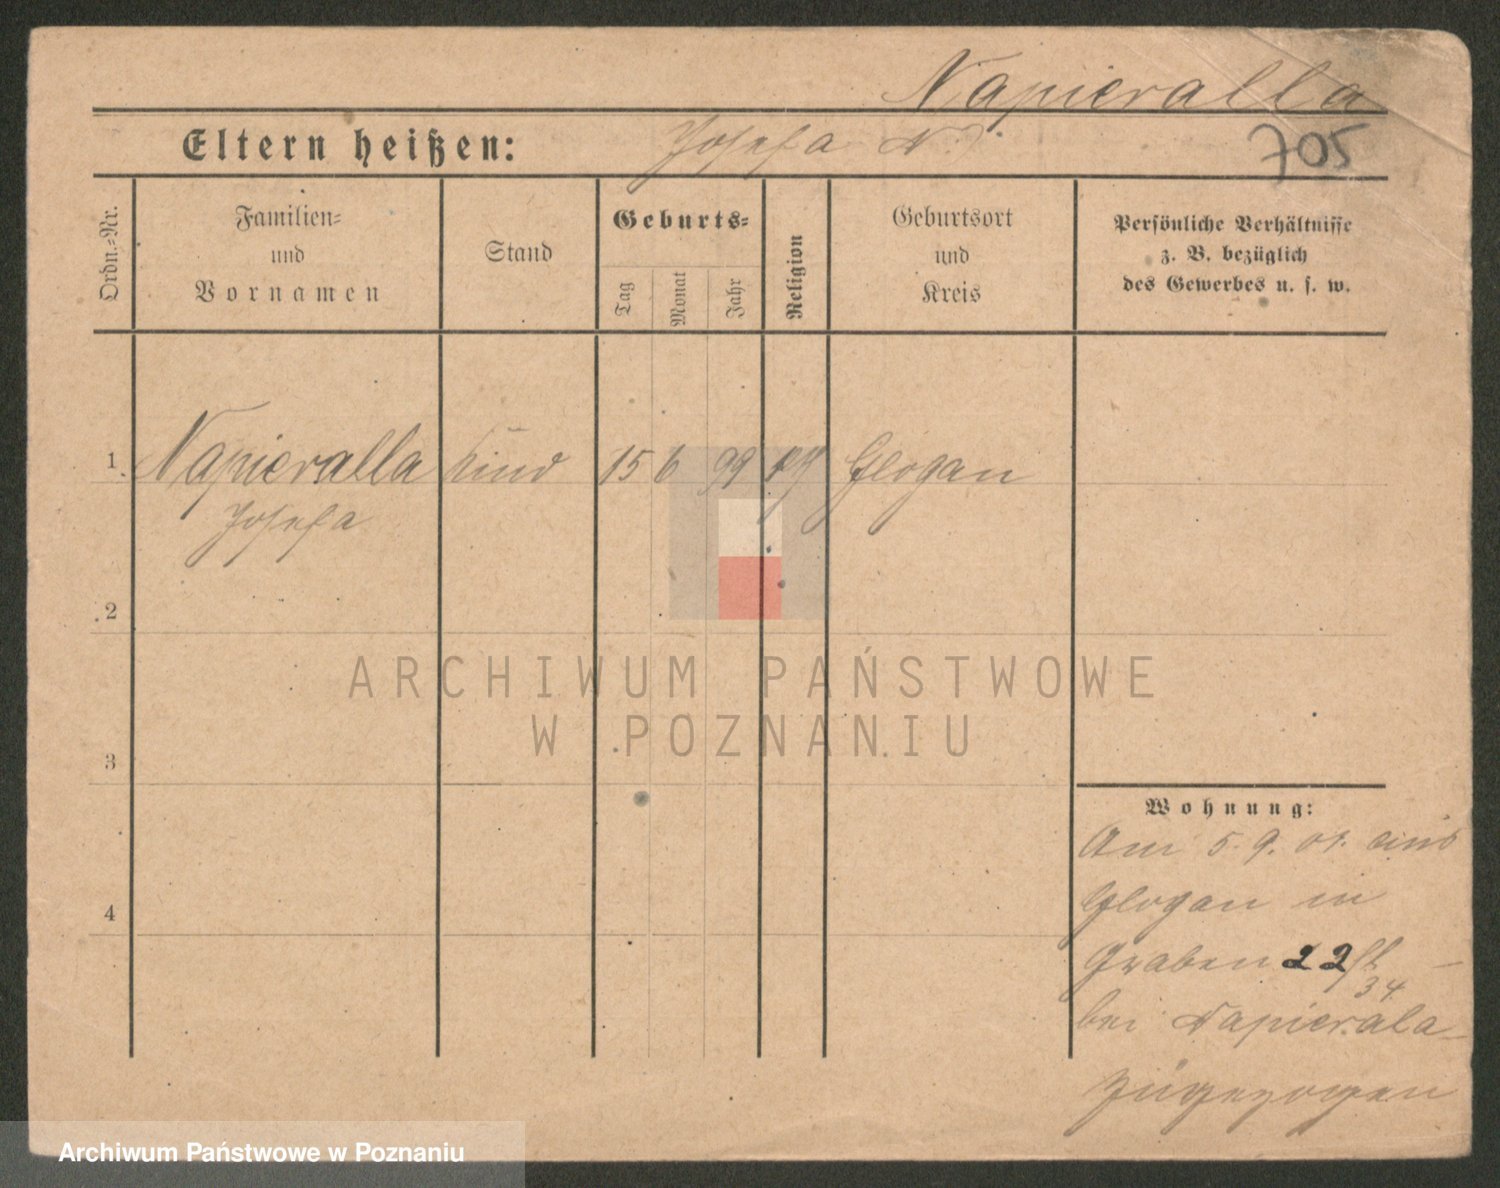 Napieralla
Eltern heißen: Josefa N.
705
Ordn.-Nr.
Familien-
und
Vornamen
Stand
Geburts-
Tag
Monat
Jahr
Religion
Geburtsort
und
Kreis
Persönliche Verhältnisse
z. B. bezüglich
des Gewerbes u. s. w.
1 Napieralla Kind 15 6 99 Glogau
Josefa
2
3
4
Wohnung:
Am 5. 9. 01. aus
Glogau in
Graben 22
34
bei Napierala
zugezogen
ARCHIWUM PAŃSTWOWE
W POZNANIU
Archiwum Państwowe w Poznaniu